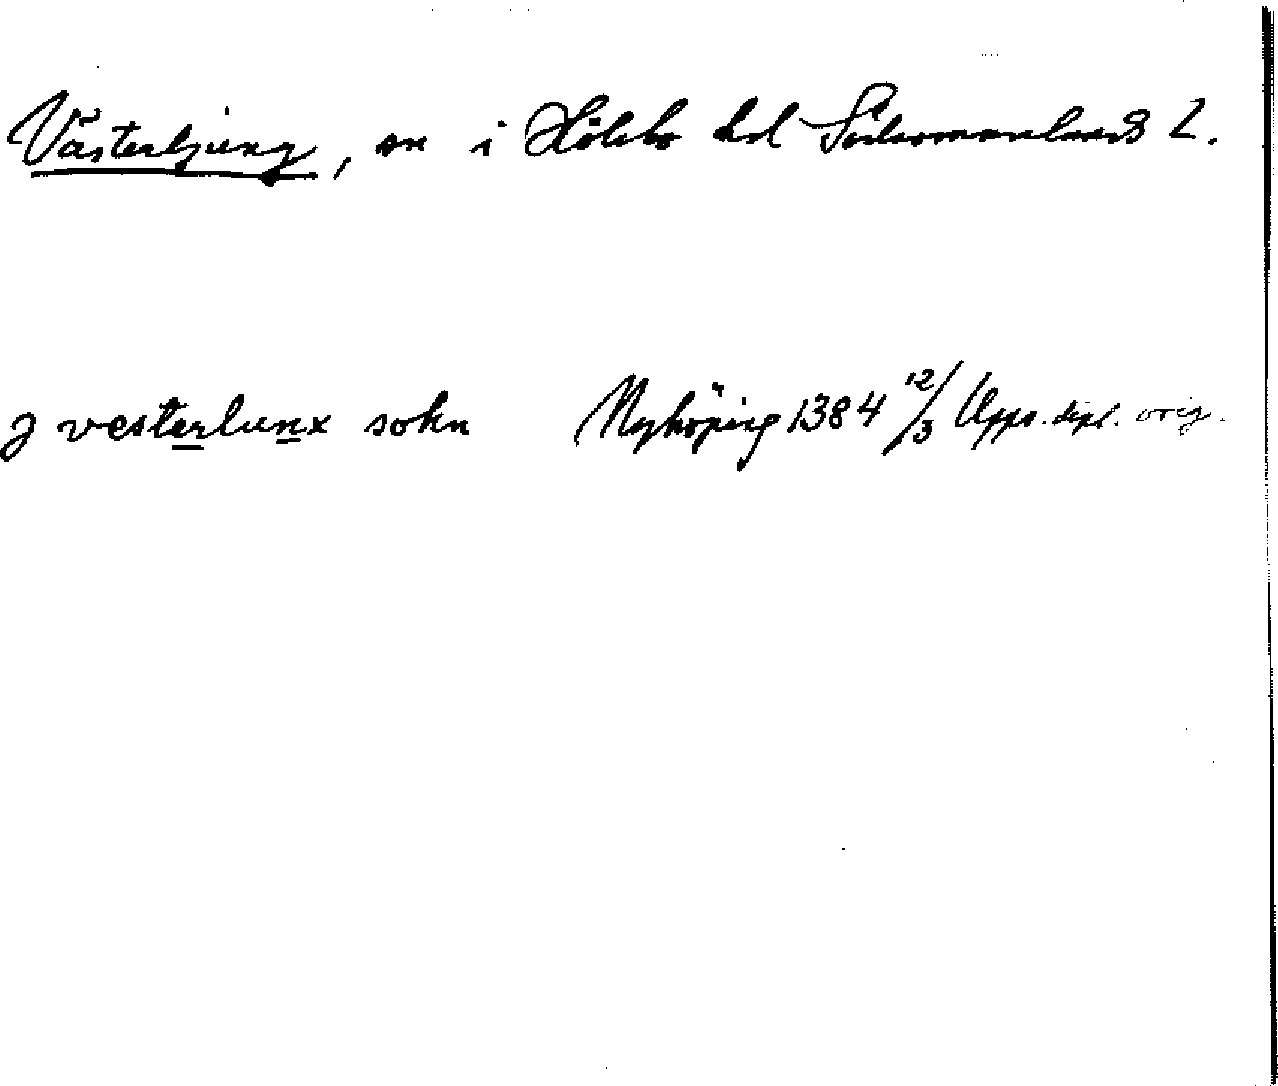 Västerljung, sn i Hölebo hd Södermanlands l.
J vesterlunx sokn Nyköping 1384 12/3 Upps. dipl. orig.